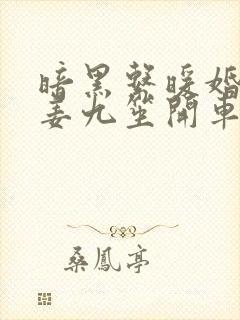 暗黑系暖婚
姜九笙開車
桑鳳亭